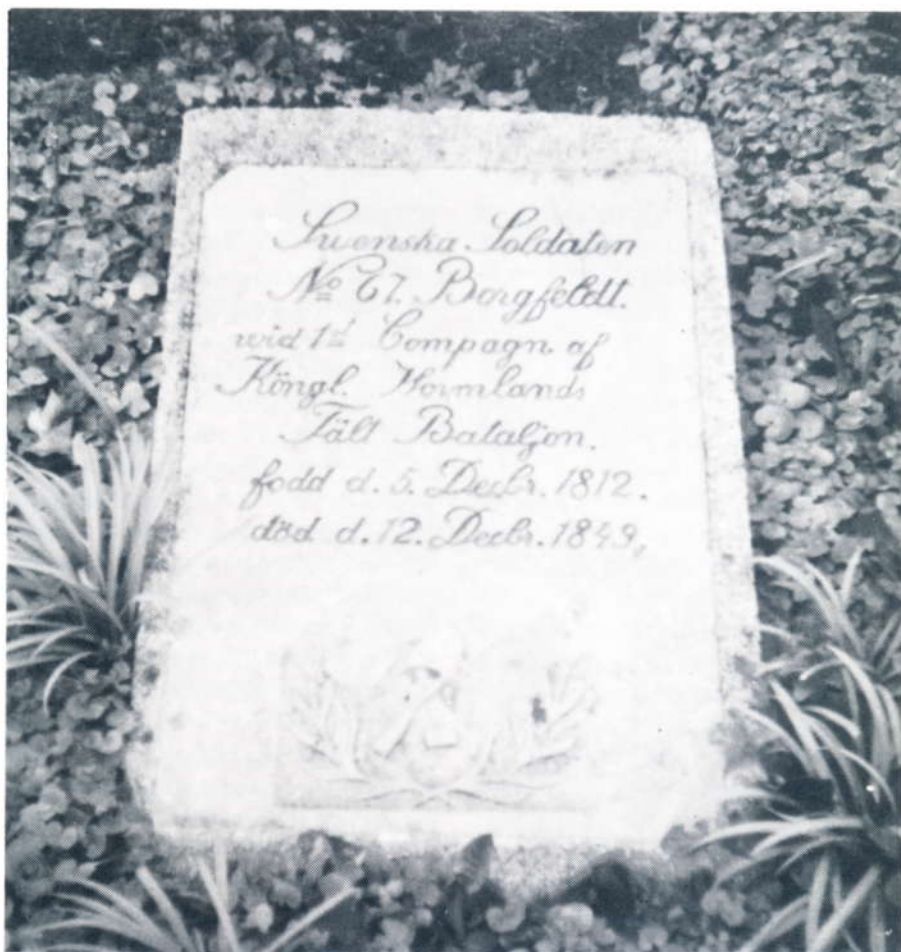 Swenska Soldaten
No 67. Borgfeldt.
wid 1sta Compagn. af
Köngl. Wermlands
Fält Bataljon.
född d. 5. Decbr. 1812.
död d. 12. Decbr. 1849.